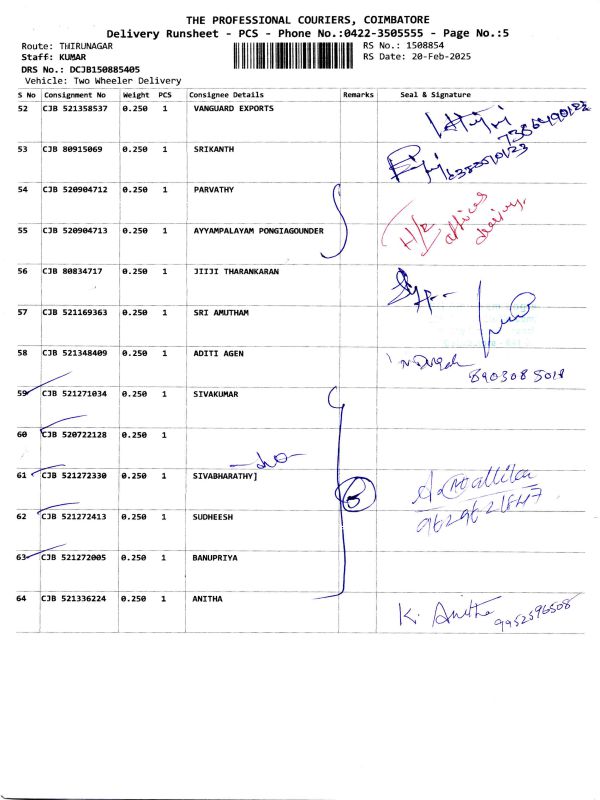 THE PROFESSIONAL COURIERS, COIMBATORE
Delivery Runsheet - PCS - Phone No.:0422-3505555 - Page No.:5
Route: THIRUNAGAR
RS No.: 1508854
Staff: KUMAR
RS Date: 20-Feb-2025
DRS No.: DCJB150885405
Vehicle: Two Wheeler Delivery
S No Consignment No Weight PCS Consignee Details Remarks Seal & Signature
52 CJB 521358537 0.250 1 VANGUARD EXPORTS
7386490122
53 CJB 80915069 0.250 1 SRIKANTH
54 CJB 520904712 0.250 1 PARVATHY
H/R offices
55 CJB 520904713 0.250 1 AYYAMPALAYAM PONGIAGOUNDER
56 CJB 80834717 0.250 1 JIIJI THARANKARAN
57 CJB 521169363 0.250 1 SRI AMUTHAM
58 CJB 521348409 0.250 1 ADITI AGEN
890308 5018
59 CJB 521271034 0.250 1 SIVAKUMAR
60 CJB 520722128 0.250 1
-do-
61 CJB 521272330 0.250 1 SIVABHARATHY]
6
A. Mallika
9629621847
62 CJB 521272413 0.250 1 SUDHEESH
63 CJB 521272005 0.250 1 BANUPRIYA
64 CJB 521336224 0.250 1 ANITHA
K. Anitha 9952596508